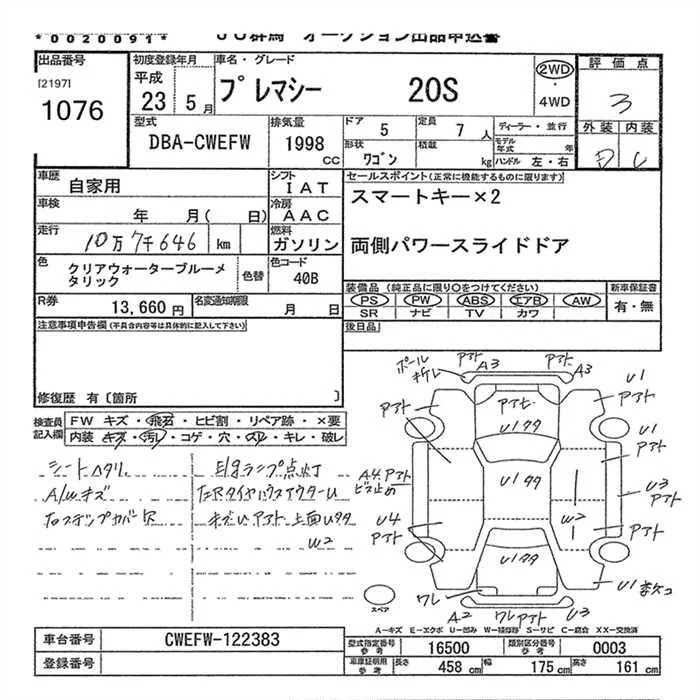 *0020091*
JU群馬 オークション出品申込書
出品番号
[2197]
1076
初度登録年月
平成
23 5月
車名・グレード
プレマシー 20S
2WD
・
4WD
評価点
3
外装 内装
D C
型式
DBA-CWEFW
排気量
1998 CC
ドア 5
定員 7人
形状 ワゴン
積載 kg
ディーラー・並行
モデル年式 年
ハンドル 左・右
車歴 自家用
シフト IAT
車検 年 月( 日)
冷房 AAC
走行 10万7千646 km
燃料 ガソリン
色 クリアウォーターブルーメタリック
色替
色コード 40B
R券 13,660円
名変通知期限 月 日
セールスポイント(正常に機能するものに限ります)
スマートキー×2
両側パワースライドドア
装備品(純正品に限り○をつけてください)
PS PW ABS エアB AW
SR ナビ TV カワ
新車保証書
有・無
後日品
注意事項申告欄(不具合内容等は具体的に記入して下さい)
修復歴 有〔箇所 〕
検査員記入欄
FW キズ・飛石・ヒビ割・リペア跡・×要
内装 キズ・汚レ・コゲ・穴・スレ・キレ・破レ
シートヘタリ
A/wキズ
右ステップカバー欠
E/gランプ点灯
キズU アフト 上面Uタタ
W2
ポール
アフト
A3
アフト
A3
U1
アフト
アフト
U1タタ
U1
アフト
A4.アフト
ビス止め
U1タタ
U3
アフト
U4
アフト
W2
アフト
U1タタ
ワレ
A2
ワレアフト
U3
U1
スペア
A-キズ E-エクボ U-凹み W-補修跡 S-サビ C-腐食 XX-交換済
車台番号 CWEFW-122383
登録番号
型式指定番号 参考 16500
類別区分番号 参考 0003
車庫証明用 参考 長さ 458 cm 幅 175 cm 高さ 161 cm